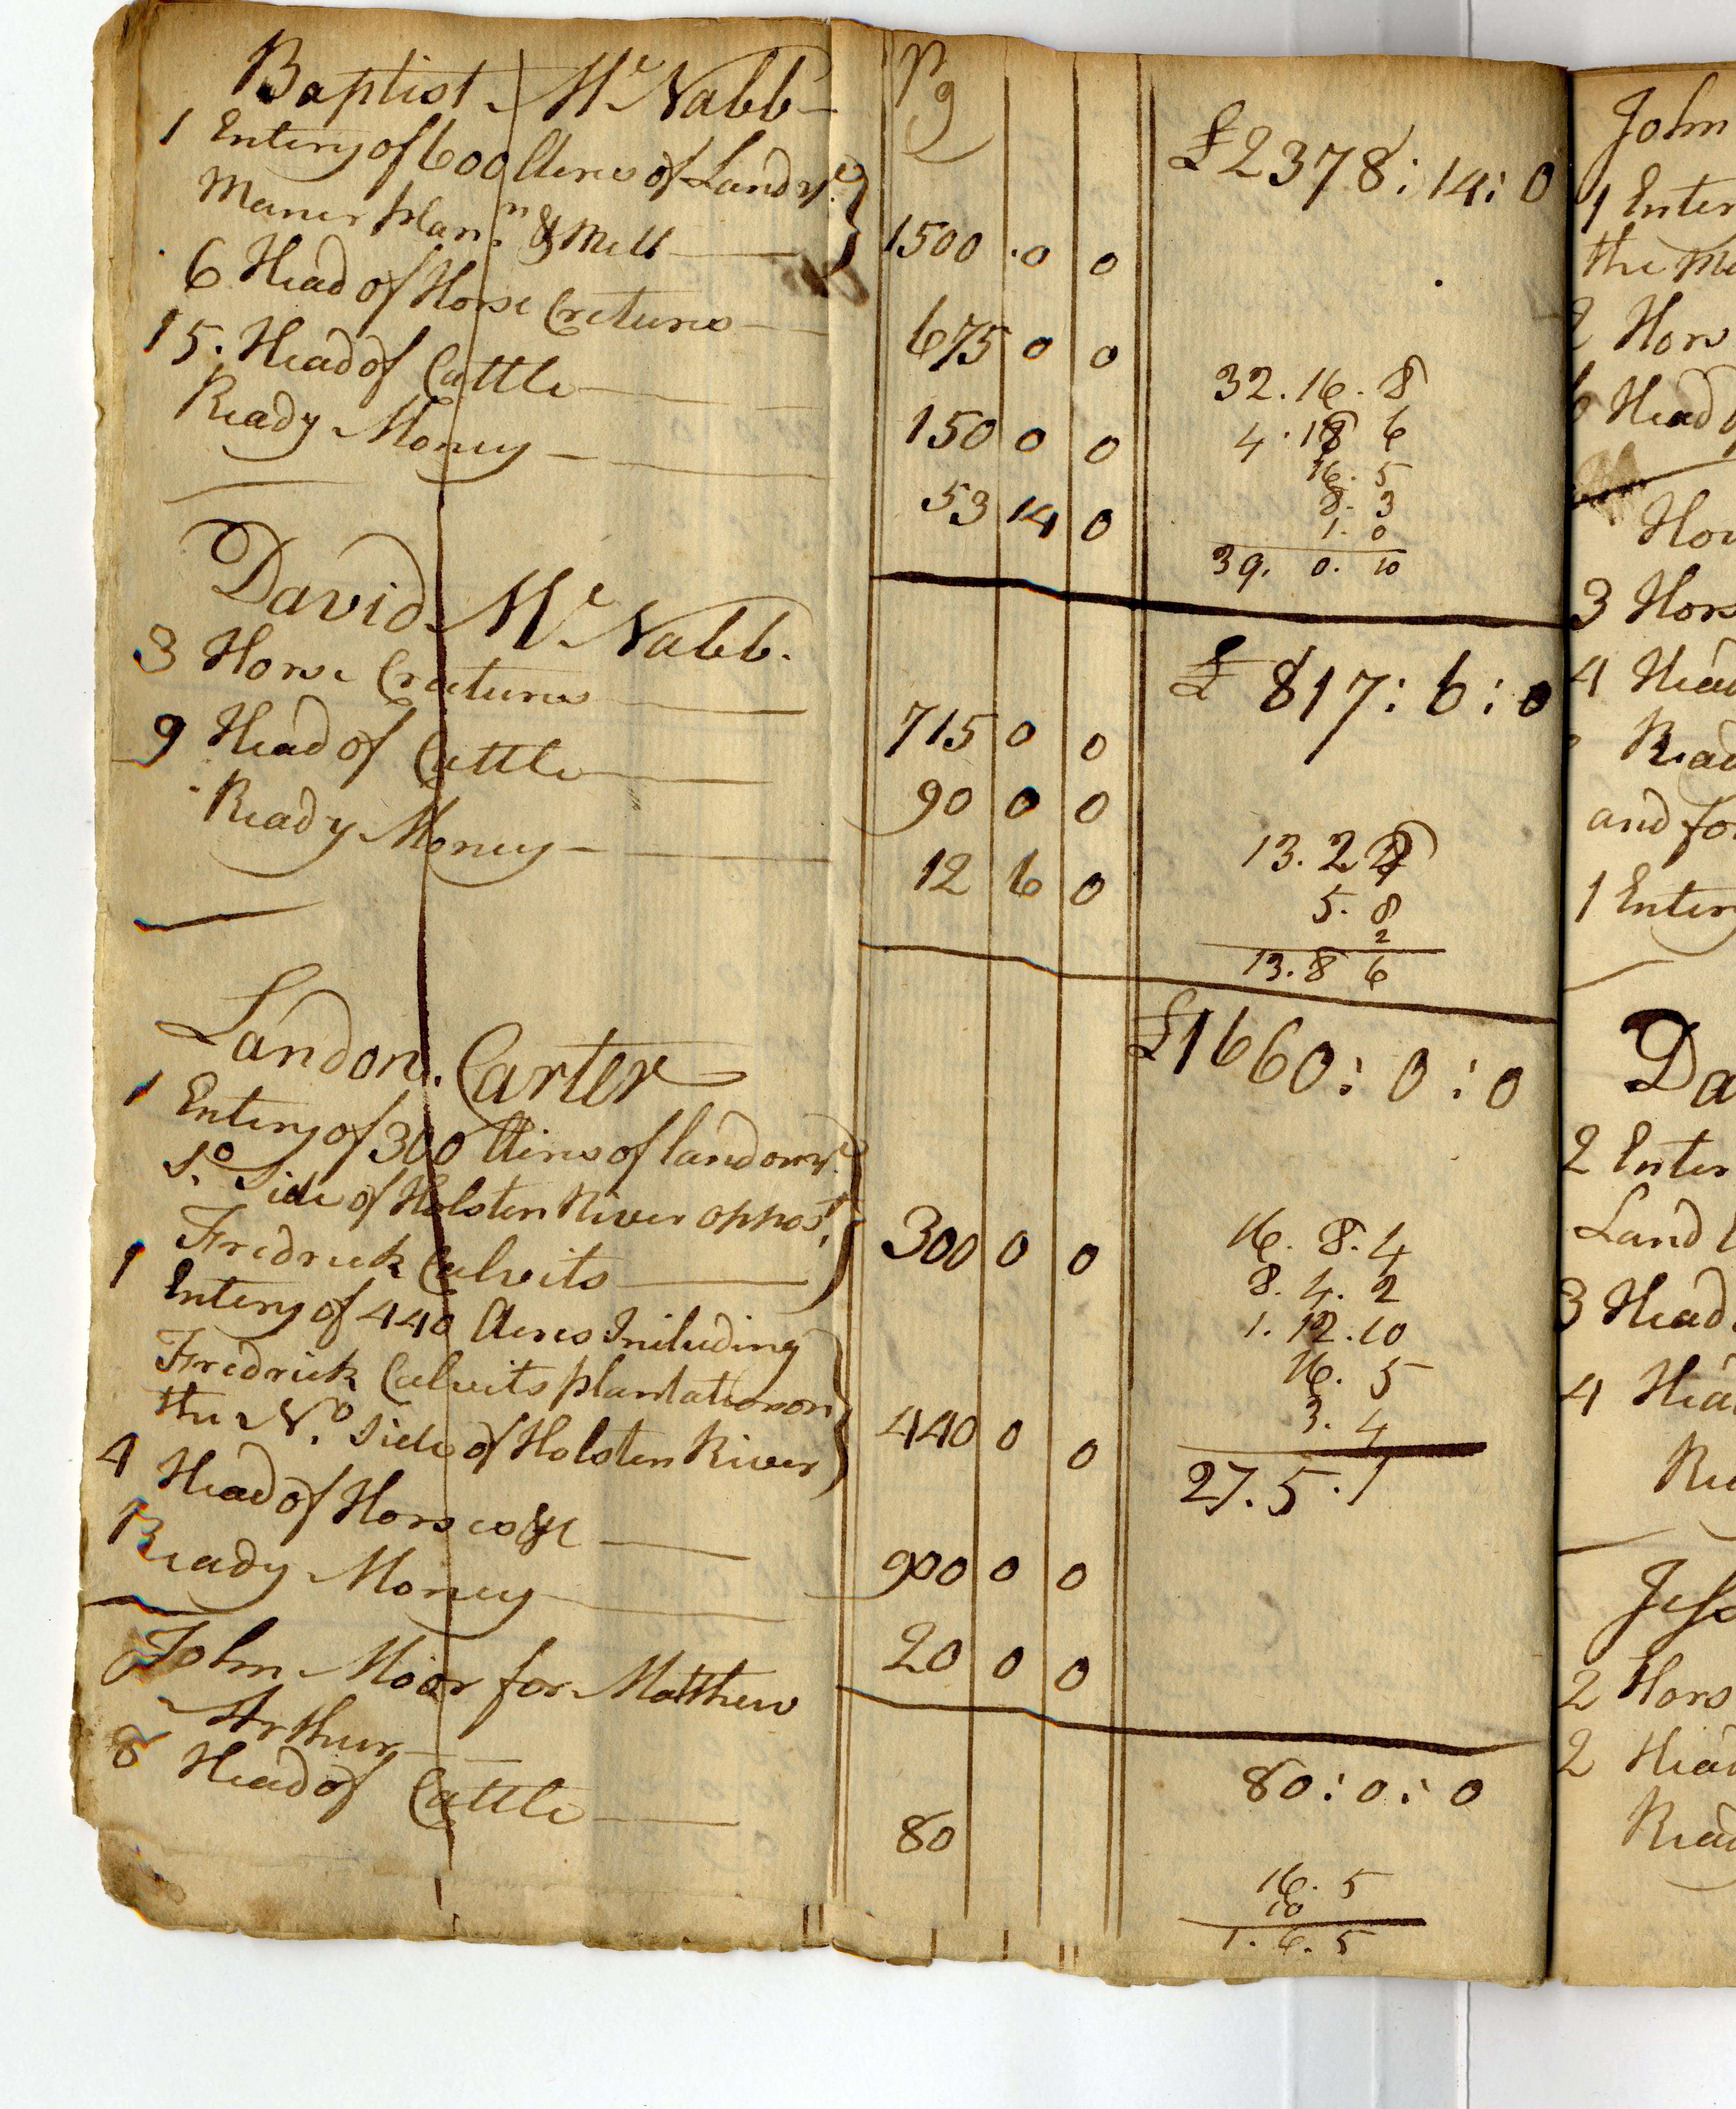 Baptist McNabb Pg
£2378:14:0
1 Entery of 600 Acres of Land ye
Maner plann & Mill 1500 . 0 0
6 Head of Horse Cretures 675 0 0
15. Head of Cattle 150 0 0
Ready Money 53 14 0
32.16.8
4.18 6
16.5
8.3
1.0
39. 0. 10
David McNabb.
£817:6:0
3 Horse Cretures 715 0 0
9 Head of Cattle 90 0 0
Ready Money 12 6 0
13.2
5.8
2
13.8 6
Landon Carter
£1660:0:0
1 Entery of 300 Acres of land on ye
So. Side of Holsten River oppost
Fredrick Calvits 300 0 0
1 Entery of 440 Acres Including
Fredrick Calvits plantation on
the No. Side of Holsten River 440 0 0
4 Head of Horses &c 900 0 0
Ready Money 20 0 0
16. 8. 4
8. 4. 2
1. 12. 10
16. 5
3. 4
27. 5. 1
John Moor for Matthew
Arthur
80:0:0
8 Head of Cattle 80
16. 5
10
1. 6. 5
John
1 Enter
the
2 Hors
6 Head
3 Hors
4 Head
Read
and for
1 Enter
Da
2 Enter
Land
3 Head
4 Hea
Re
Jess
2 Hors
2 Head
Read